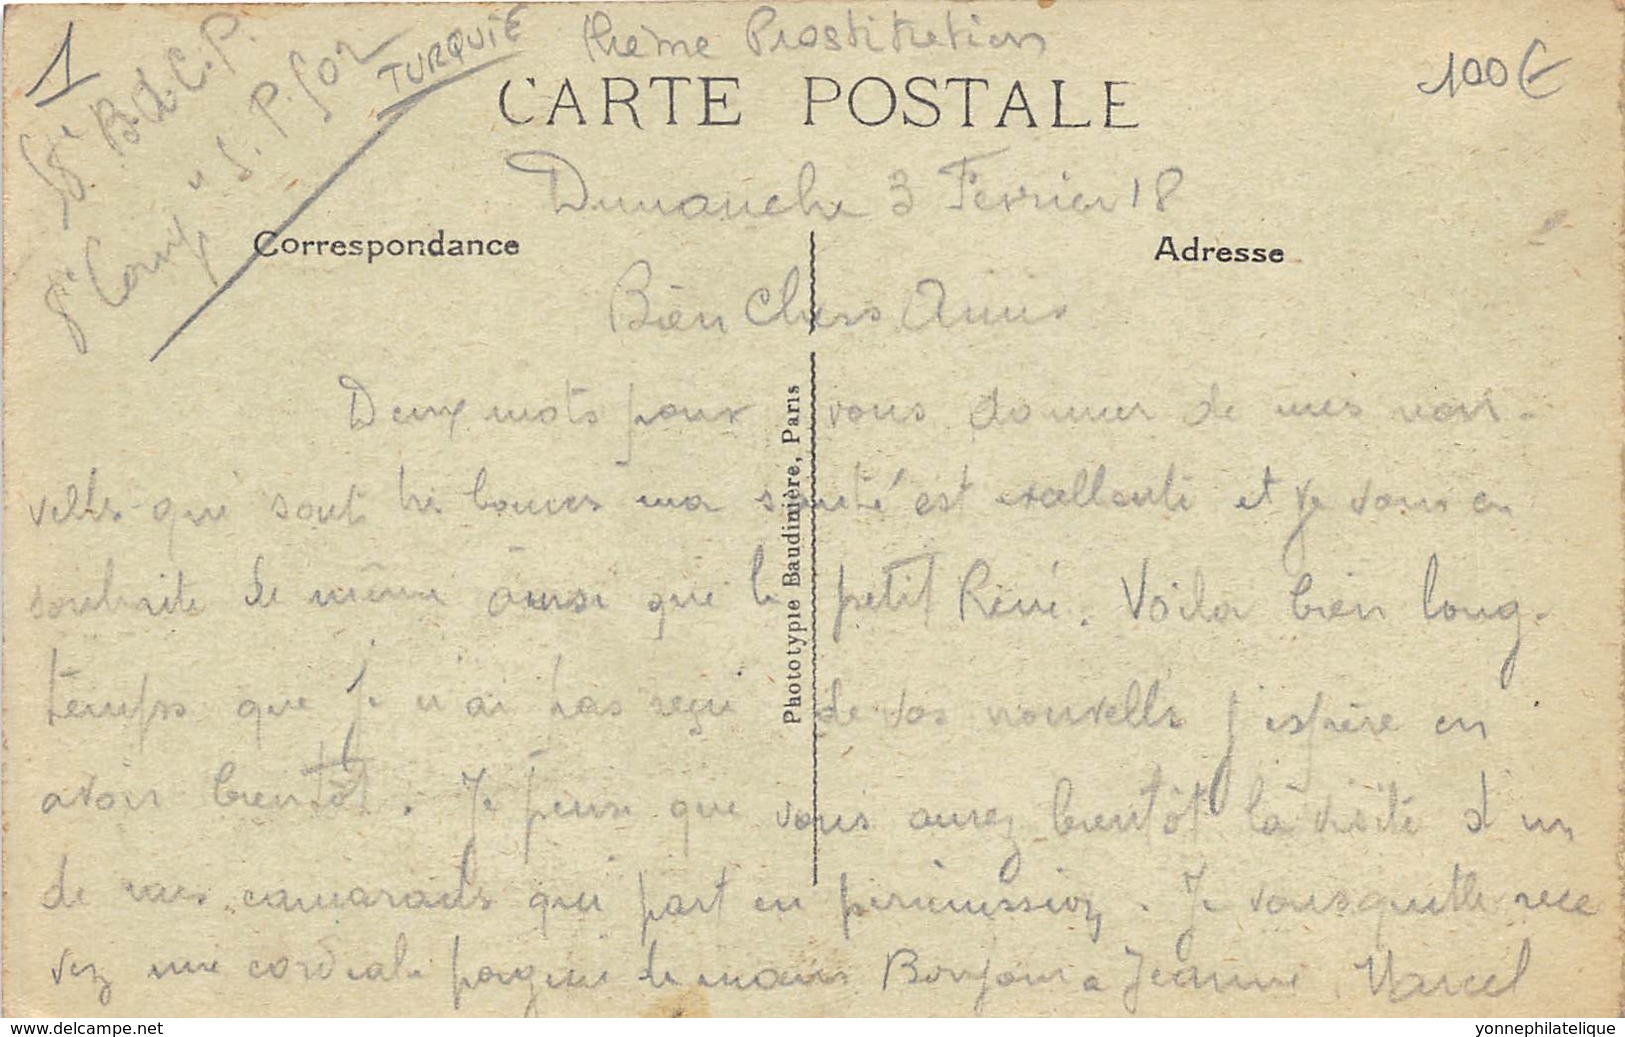 1
thème Prostitution
TURQUIE
100€
58e B.d.C.P.
8e Comp" S.P. 502
CARTE POSTALE
Dimanche 3 Fevrier 18
Correspondance
Adresse
Bien Chers Amis
Deux mots pour vous donner de mes nou-
velles qui sont tres bonnes ma santé est excellente et je vous en
souhaite de même ainsi que le petit René. Voila bien long-
temps que je n'ai pas reçu de vos nouvelles j'espère en
avoir bientôt. Je pense que vous aurez bientôt la visite d'un
de mes camarades qui part en permission. Je vous quitte rece
vez une cordiale poignée de mains Bonjour a Jeanne Marcel
Phototypie Baudinière, Paris
www.delcampe.net
yonnephilatelique